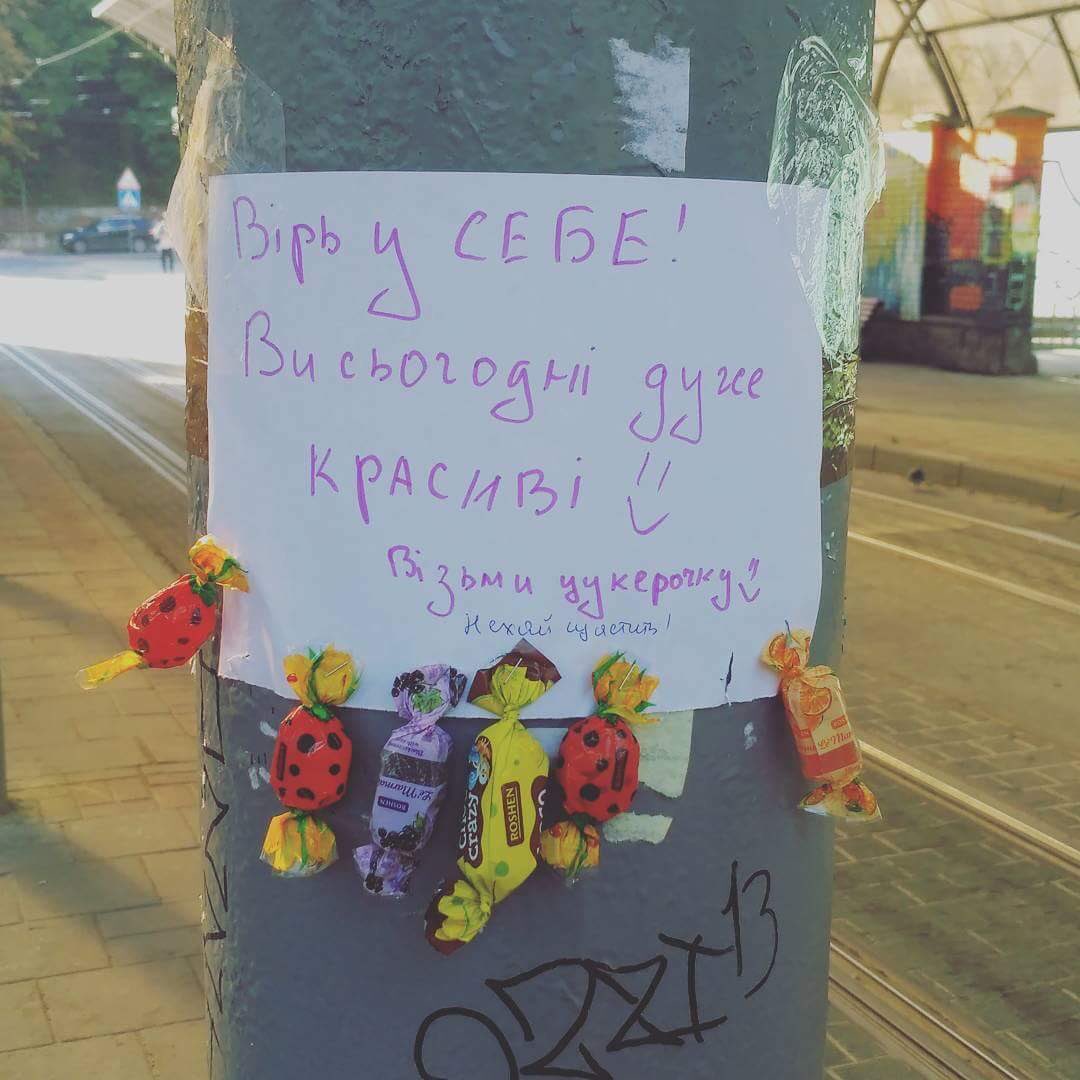 Вірь у СЕБЕ!
Ви сьогодні дуже
красиві
Візьми цукерочку
Нехай щастить!
Le Marma
ROSHEN
crazy
ROSHEN
Le Marm
13